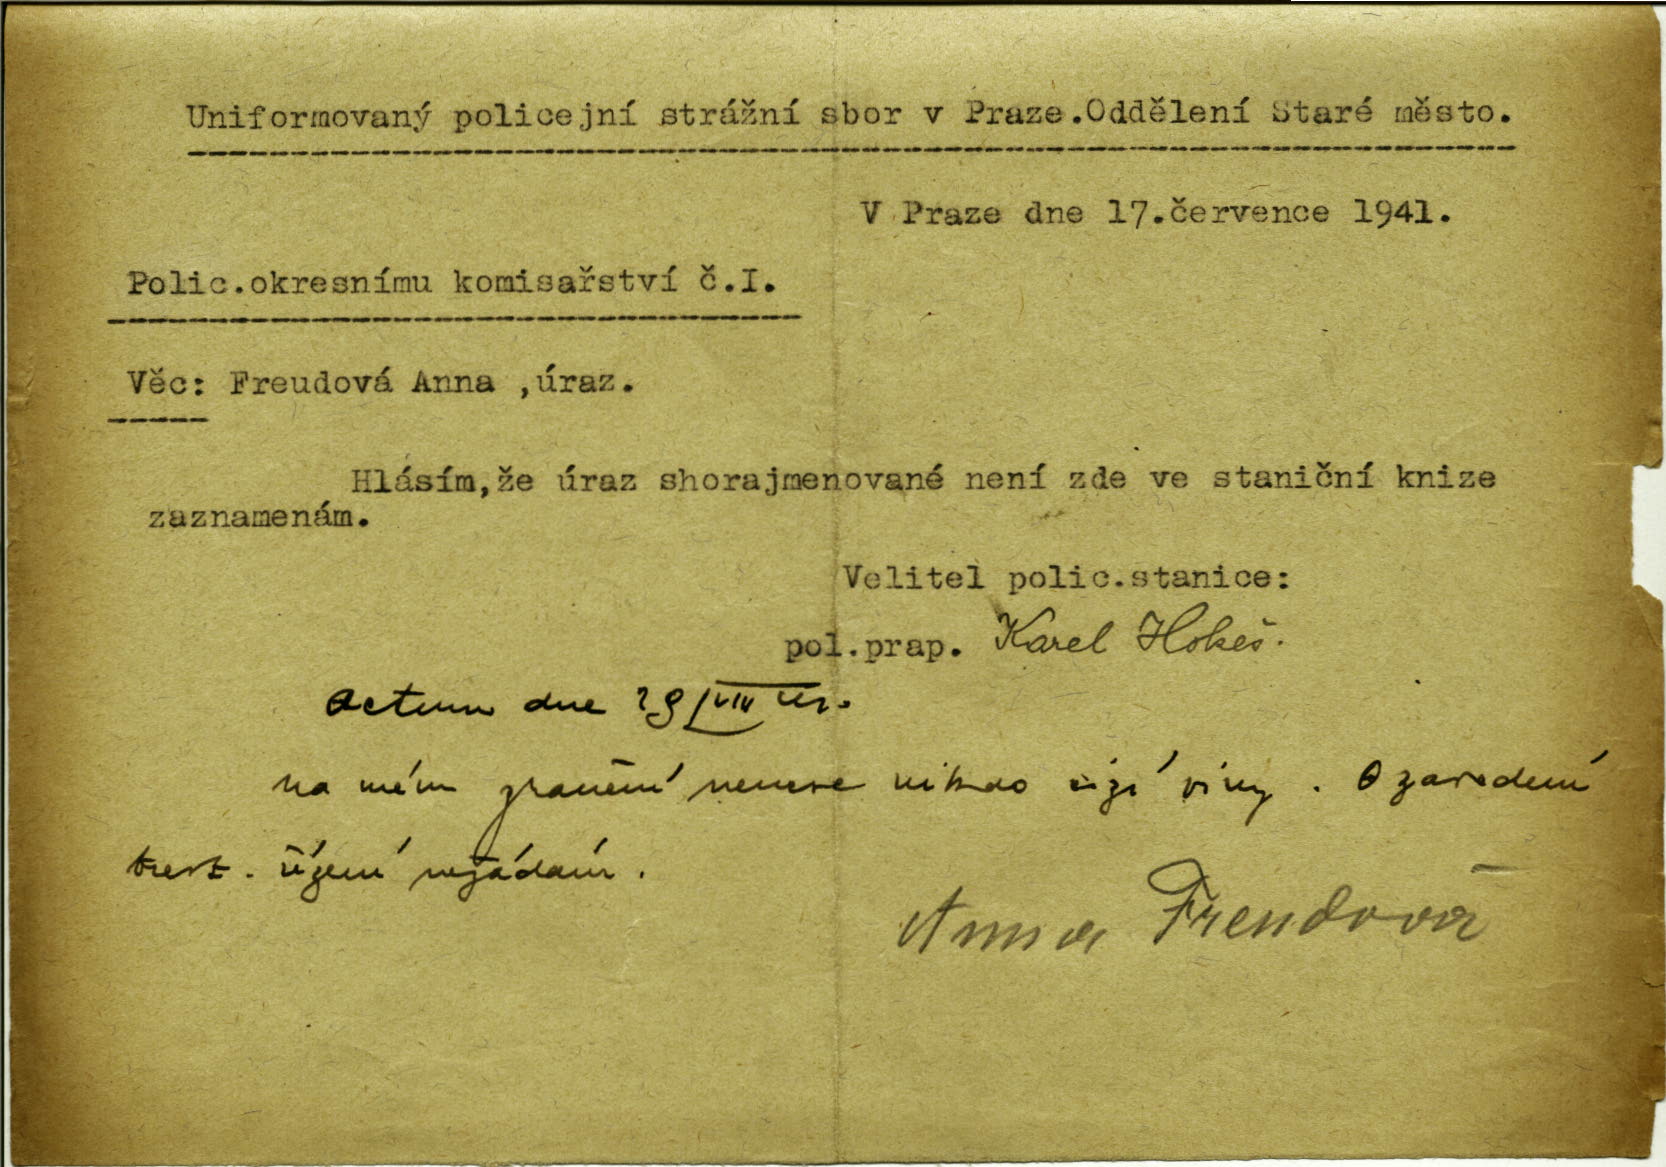 Uniformovaný policejní strážní sbor v Praze.Oddělení Staré město.
V Praze dne 17.července 1941.
Polic.okresnímu komisařství č.I.
Věc: Freudová Anna ,úraz.
Hlásím,že úraz shorajmenované není zde ve staniční knize
zaznamenám.
Velitel polic.stanice:
pol.prap. Karel Hokeš.
Actum dne 29 VII
na mém zranění nenese nikdo cizí viny . O zavedení
trest. řízení nežádám.
Anna Freudová